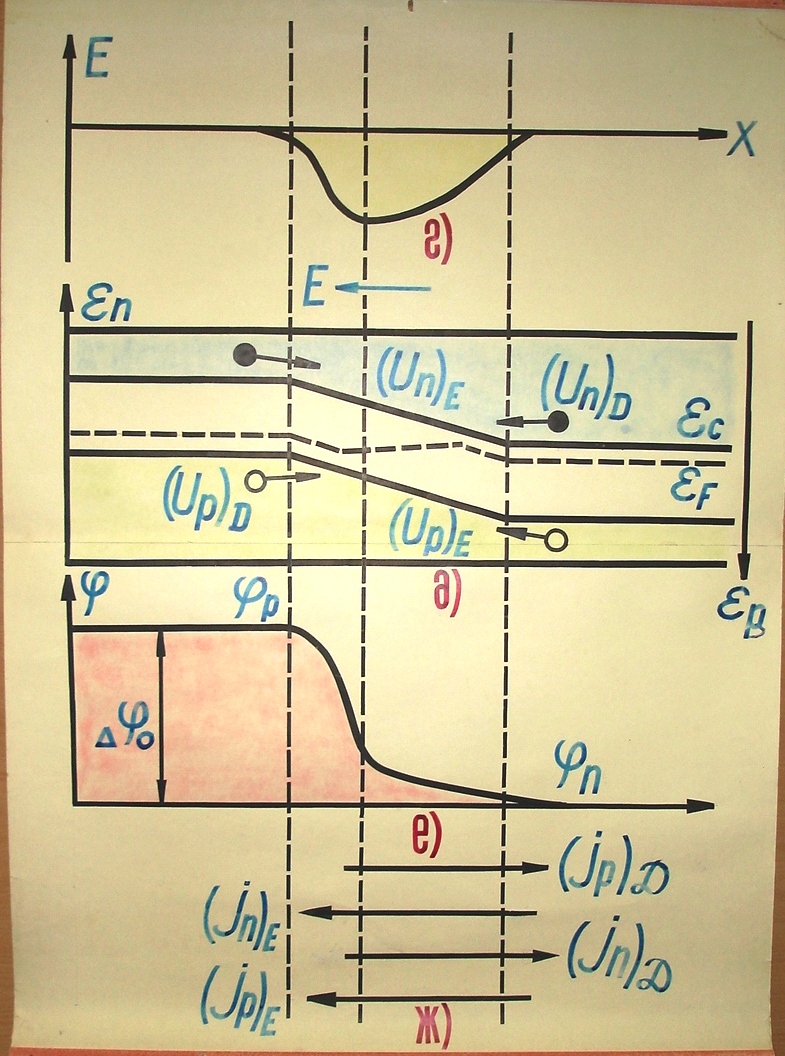 E
X
г)
E
εn
(Un)E
(Un)D
εc
εF
(Up)D
(Up)E
д)
εp
φ
φp
Δφ0
φn
е)
(jp)D
(jn)E
(jn)D
(jp)E
ж)